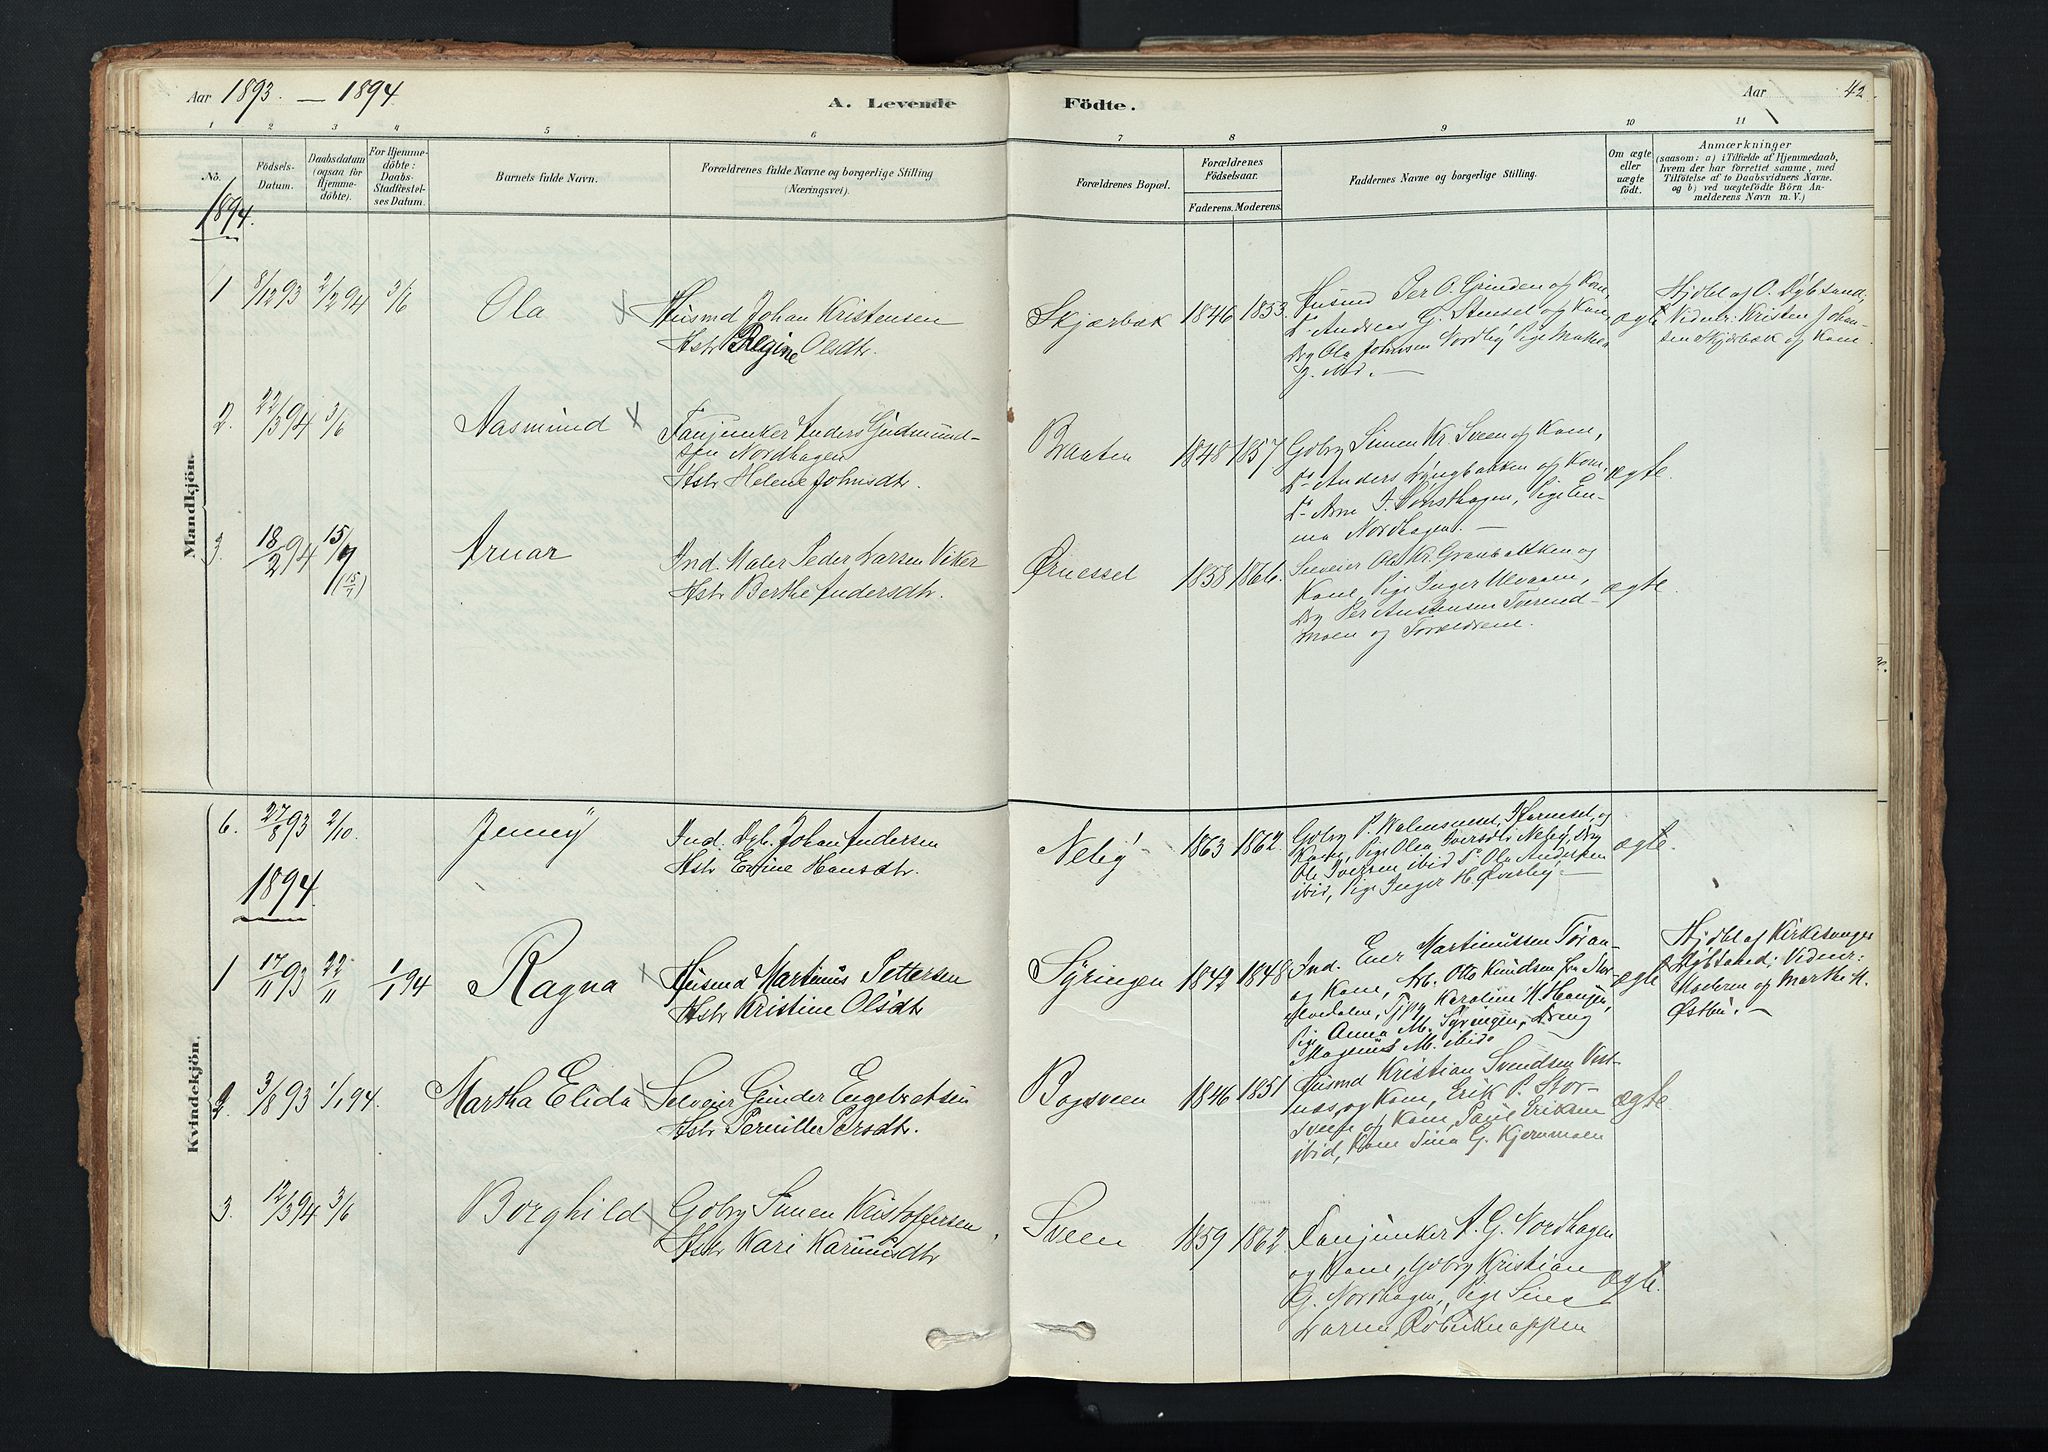 Aar 1893. — 1894.
A. Levende Födte.
Aar 42.
1 2 3 4 5 6 7 8 9 10 11
No.
Födsels-
Datum.
Daabsdatum
(ogsaa for
Hjemme-
döbte).
For Hjemme-
döbte:
Daabs-
Stadfæstel-
ses Datum.
Barnets fulde Navn.
Forældrenes fulde Navne og borgerlige Stilling
(Næringsvei).
Forældrenes Bopæl.
Forældrenes
Födselsaar.
Faderens. Moderens.
Faddernes Navne og borgerlige Stilling.
Om ægte
eller
uægte
födt.
Anmærkninger
(saasom: a) i Tilfælde af Hjemmedaab,
hvem der har forrettet samme, med
Tilföielse af to Daabsvidners Navne.
og b) ved uægtefödte Börn An-
melderens Navn m. V.)
Mandkjön.
1894.
1 8/12 93 2/2 94 3/6 Ola
Husmd Johan Kristensen
Hstr Regine Olsdtr.
Skjærbæk 1846 1853.
Husmd Per O. Grinden og Kone,
Do Andreas G. Stensel og Kone
Drg Ola Johnsen Nordby, Pige
ægte
Hjdbt af O. Dybsand;
Vidner: Kristen Johan-
sen Skjærbæk og Kone
2. 22/3 94 3/6 Aasmund
Fanejunker Anders Gudmund-
sen Nordhagen
Hstr Helene Johnsdtr.
Braaten 1848 1857.
Gdbrg Simen Kr. Sveen og Kone,
Do Anders Lyngbakken og Kone
Do Arne J. Tønsthagen, Pige Em-
ma Nordhagen. —
ægte.
3. 18/2 94 15/7 (15/7) Arnar
Ind. Maler Peder Larsen Viker
Hstr Berthe Andersdtr.
Ørnessel 1858 1866.
Selveier Ole Kr. Granbakken og
Kone, Pige Inger Ulvaaen,
Drg Per Austensen Tverend-
moen og Forældrene.
ægte.
Kvindekjön.
6. 27/8 93 2/10. Jenny
Ind. Dgl. Johan Andersen
Hstr Eline Hansdtr.
Neby 1863 1862.
Gdbrg P. Halmsnæs, Kornsel, og
Kone, Pige Olea Iversdtr Neby, Drg
Ole Iversen ibid Do Ola Andersen
ibid, Pige Inger H. Øverby. —
ægte.
1894.
1 17/11 93 22/11 1/1 94 Ragna
Husmd Martinus Pettersen
Hstr Kristine Olsdtr
Syringen 1842 1848
Ind. Ener Martinussen Tøran-
og Kone, Arb. Otto Knudsen fra Stor-
elvedalen, Tjpg Karoline K. Haugen,
Pige Anna M. Syringen, Dreng
Magnus M. ibid.
ægte
Hjdbt af Kirkesanger
Dybsand; Vidner:
Moderen og Marthe M.
Østby. —
2. 3/8 93 1/1 94. Martha Elida
Selveier Gunder Engebretsen
Hstr Pernille Persdtr.
Bagsveen 1846 1851
Husmd Kristian Svendsen Vest-
næs, og Kone, Erik P. Stor-
sveen og Kone, Paul Eriksen
ibid, Kone Tina G. Kjernmoen
ægte
3. 12/3 94 3/6 Borghild
Gdbrg Simen Kristoffersen,
Hstr Kari Karinusdtr
Sveen 1859 1862
Fanejunker A. G. Nordhagen
og Kone, Gdbrg Kristian
G. Nordhagen, Pige Sine
Larsen Røberknappen
ægte.